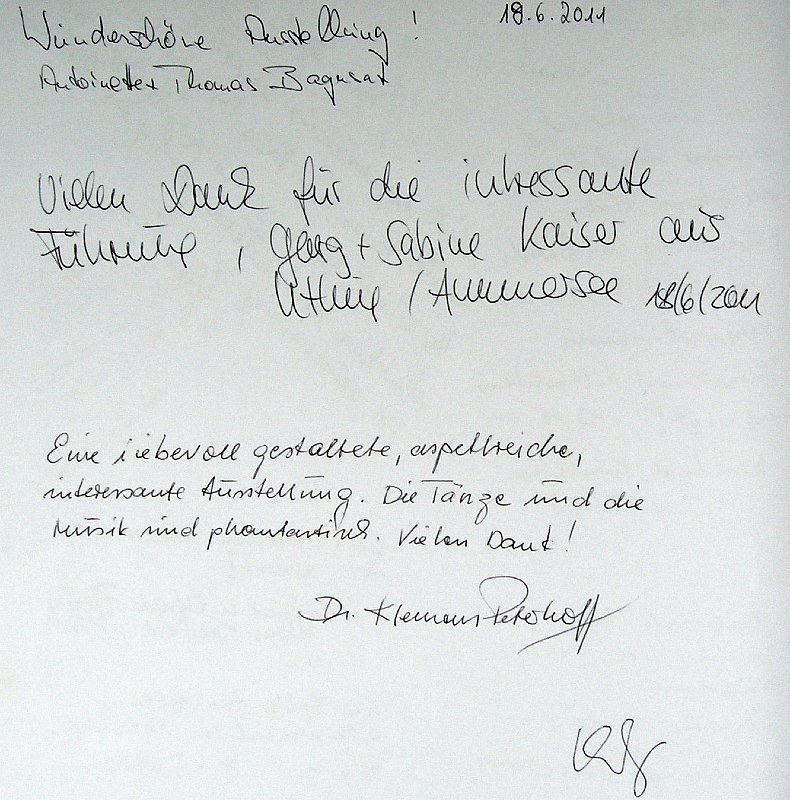 Wunderschöne Ausstellung ! 19.6.2011
Antoinette + Thomas Bagusat
Vielen Dank für die intressante
Führung, Georg + Sabine Kaiser aus
Utting / Ammersee 18/6/2011
Eine liebevoll gestaltete, aspektreiche,
interessante Ausstellung. Die Tänze und die
Musik sind phantastisch. Vielen Dank!
Dr. Klemens Peterhoff